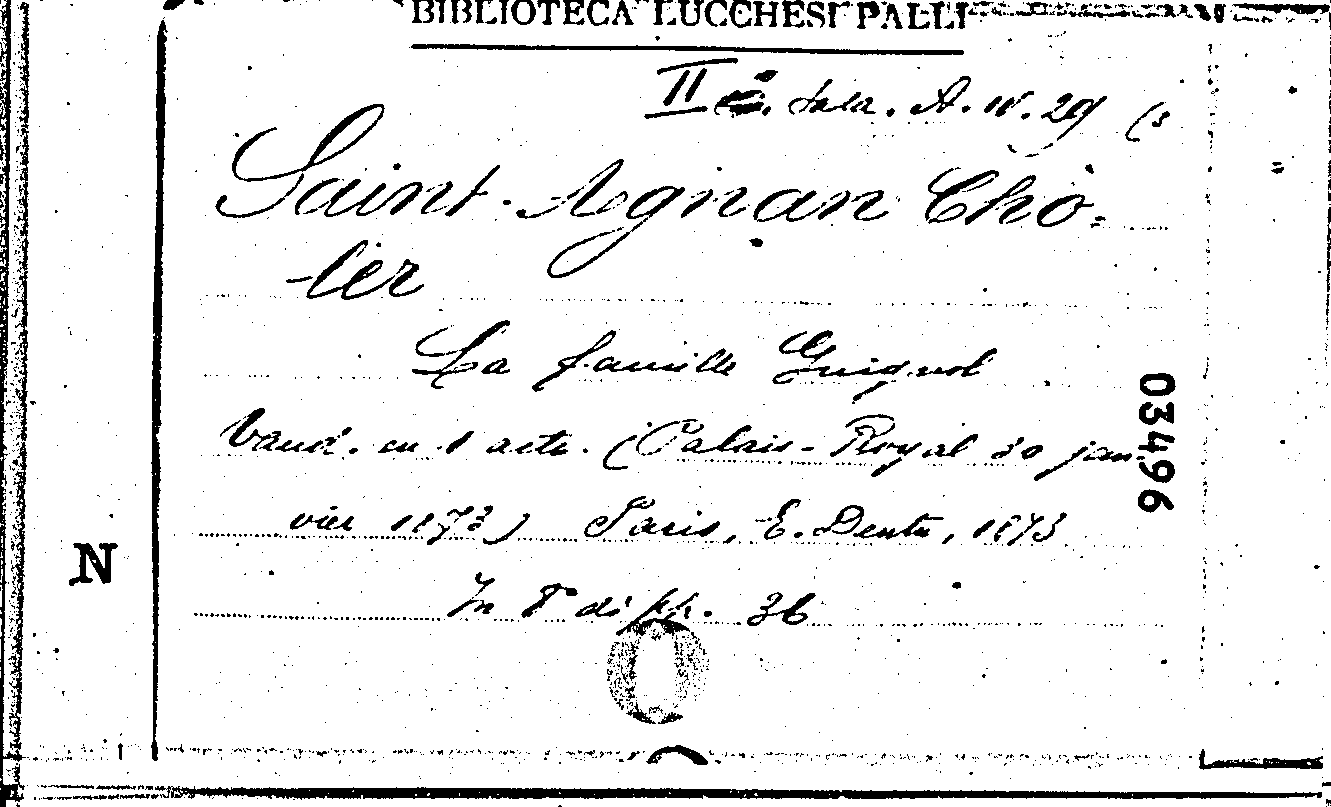 BIBLIOTECA LUCCHESI PALLI
II Sala. A. IV. 29 (3
Saint-Agnan Cho-
-ler
La famille Guignol
Vaud. en 1 acte. (Palais-Royal 30 jan-
vier 1873) Paris, E. Dentu, 1873
In 8° di pp. 36
03496
N